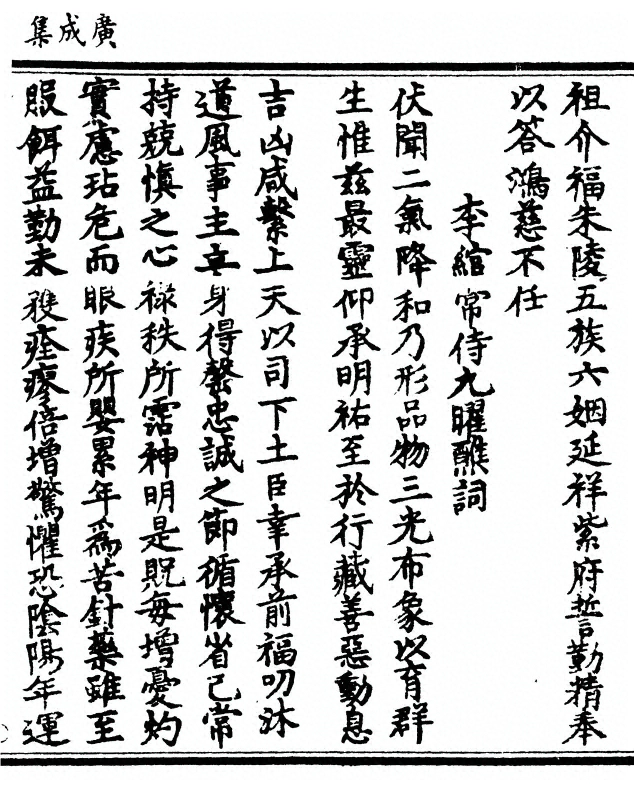 廣成集
祖介福朱陵五族六姻延祥紫府誓勤精奉
以答鴻慈不任
李綰常侍九曜醮詞
伏聞二氣降和乃形品物三光布象以育群
生惟兹最靈仰承明祐至於行藏善惡動息
吉凶咸繫上天以司下土臣幸承前福叨沐
道風事主立身得罄忠誠之節循懷省己常
持兢慎之心禄秩所霑神明是貺每增憂灼
實慮玷危而眼疾所嬰累年為苦針藥雖至
服餌益勤未獲痊瘳倍增驚懼恐陰陽年運